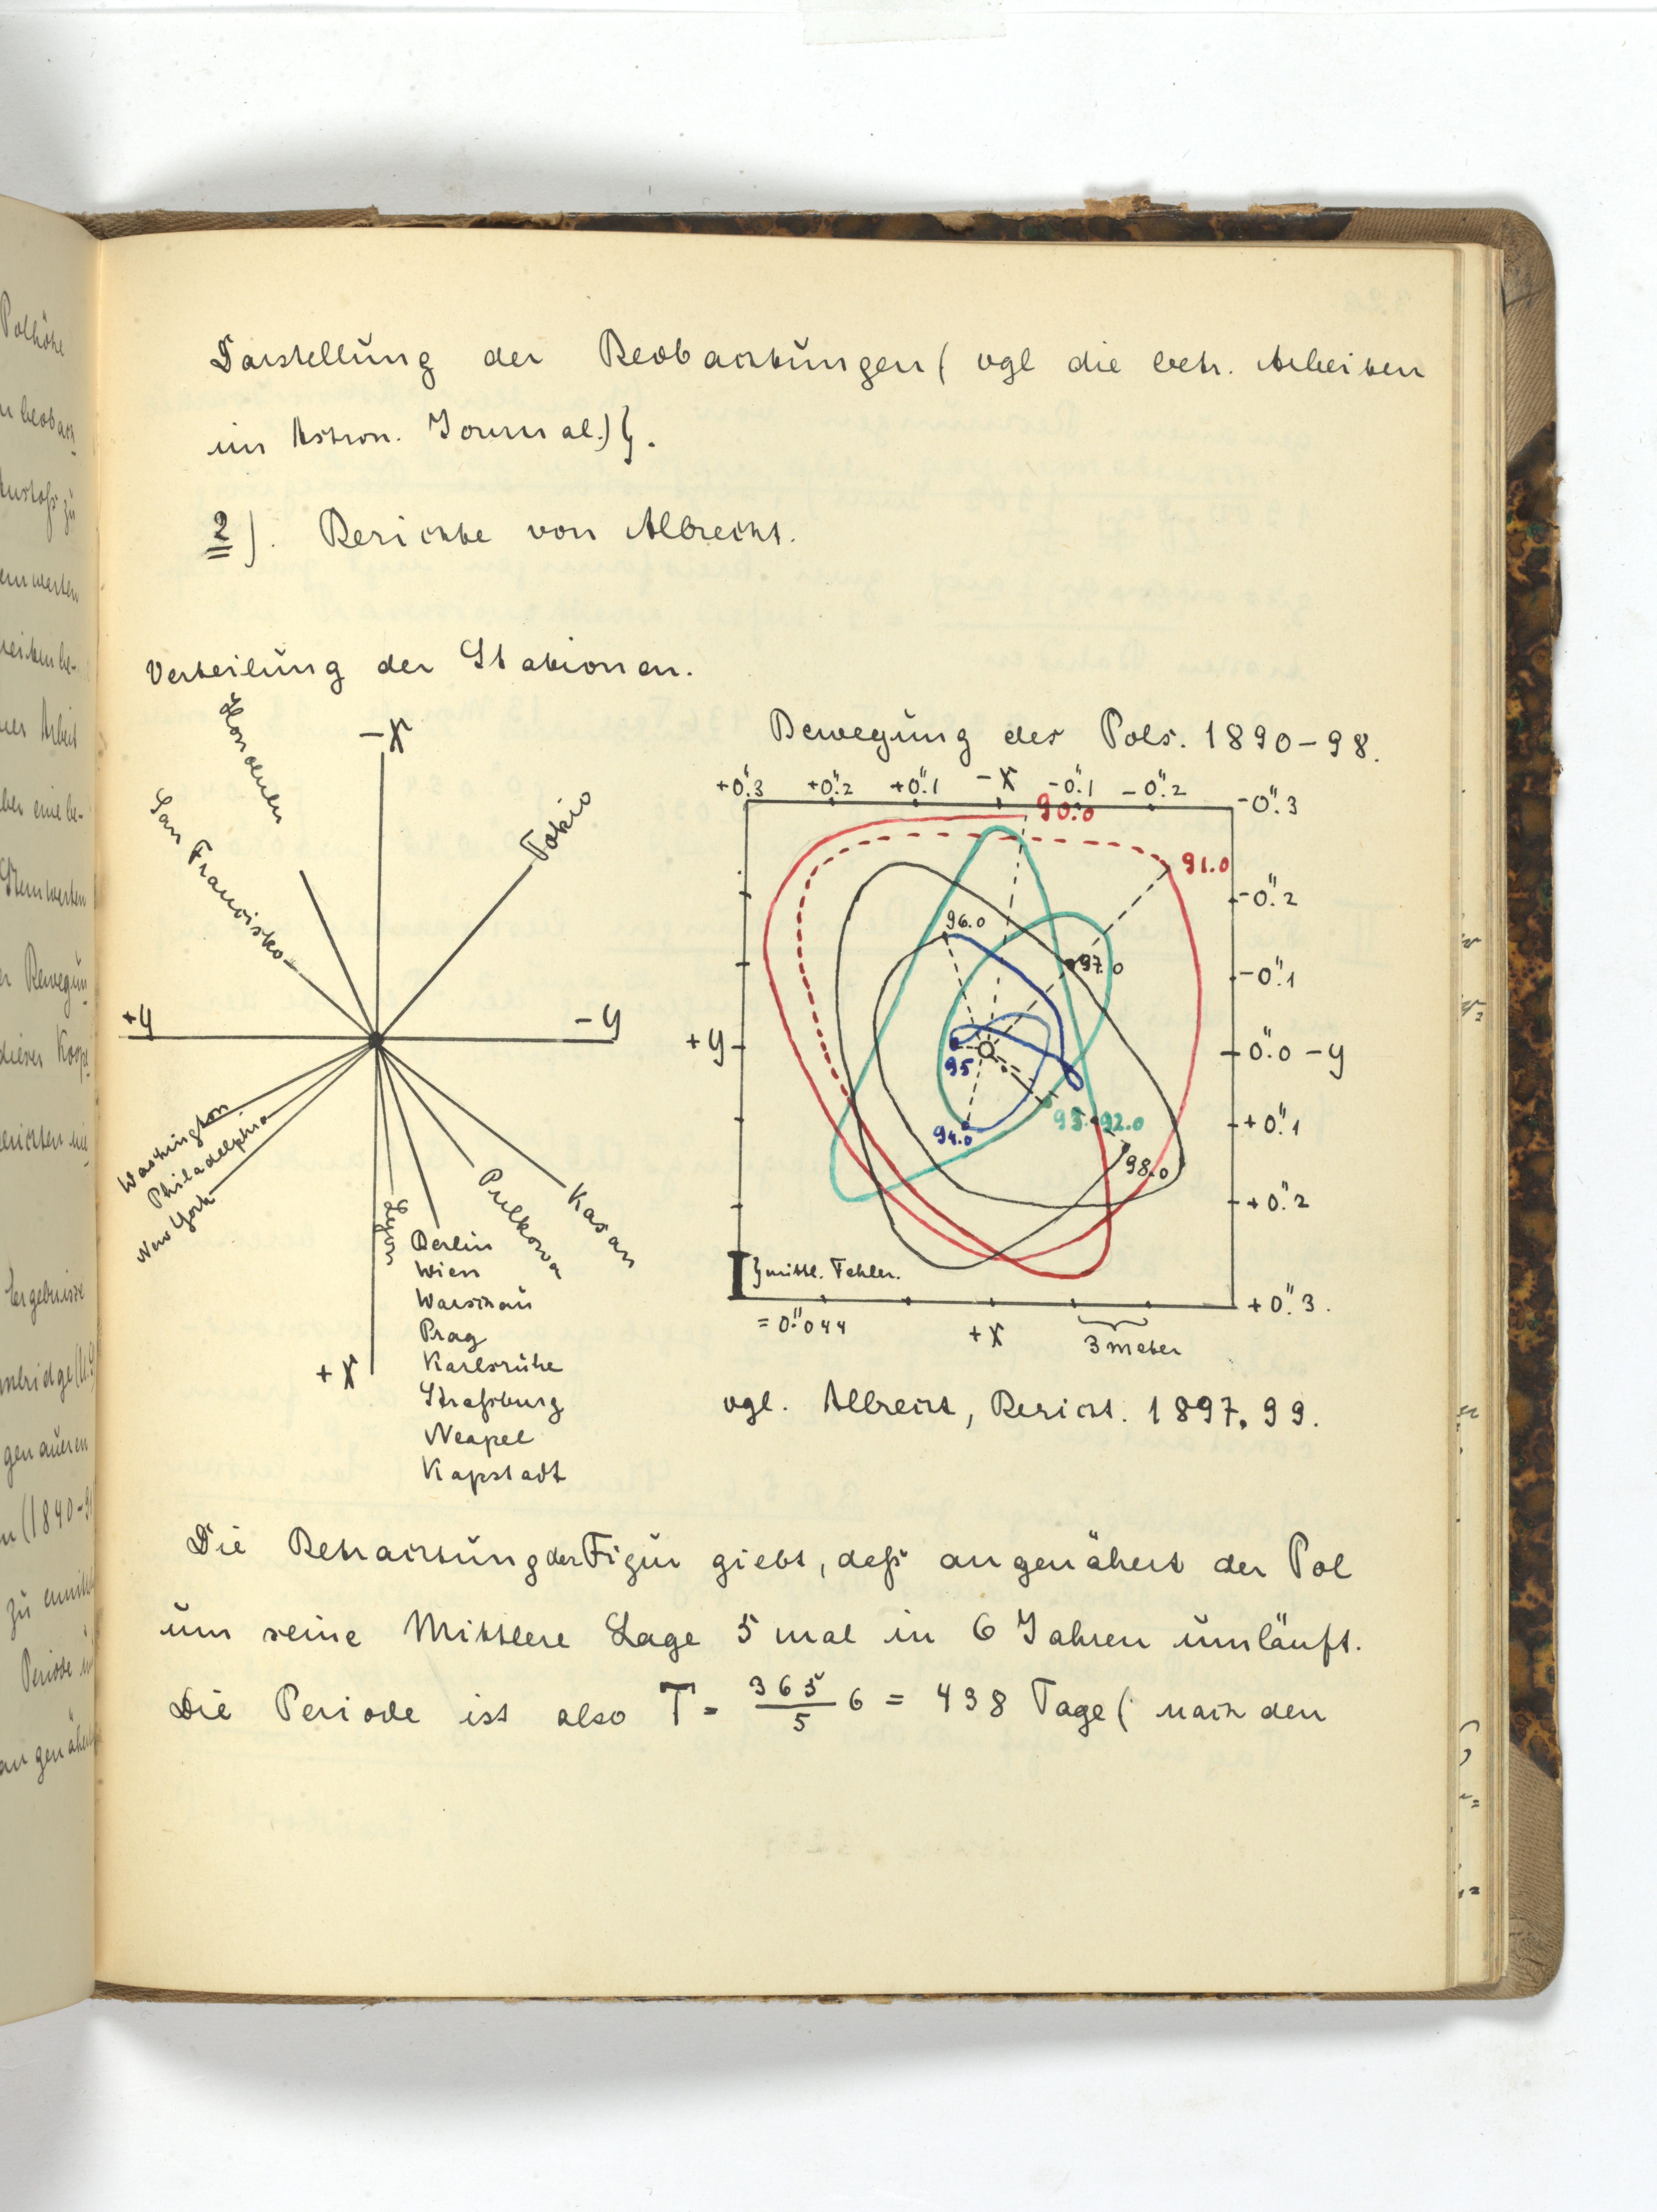 Darstellung der Beobachtungen ( vgl die betr. Arbeiten
im Astron. Journal.) }.
2). Berichte von Albrecht.
Verteilung der Stationen.
-X
Honolulu
San Francisko
Tokio
+y
-y
Washington
Philadelphia
New York
Lyon
Pulkowa
Kasan
Berlin
Wien
Warschau
Prag
Karlsruhe
Straßburg
Neapel
Kapstadt
+X
Bewegung des Pols. 1890-98.
+0."3 +0."2 +0."1 -X -0."1 -0."2
-0."3
90.0
91.0
-0."2
96.0
97.0
-0."1
+y
95
0."0 -y
94.0
93. 92.0
+0."1
98.0
+0."2
} mittl. Fehler.
= 0."044
+X
3 meter
+0."3.
vgl. Albrecht, Bericht. 1897, 99.
Die Betrachtung der Figur giebt, daß angenähert der Pol
um seine Mittlere Lage 5 mal in 6 Jahren umläuft.
Die Periode ist also T = 365/5 6 = 438 Tage ( nach den
Polhöhe
beobach
Anstoß zu
Sternwerten
r Bewegun
dieser Koope
Ergebnisse
genaueren
n (1840-9
Periode
angenähe